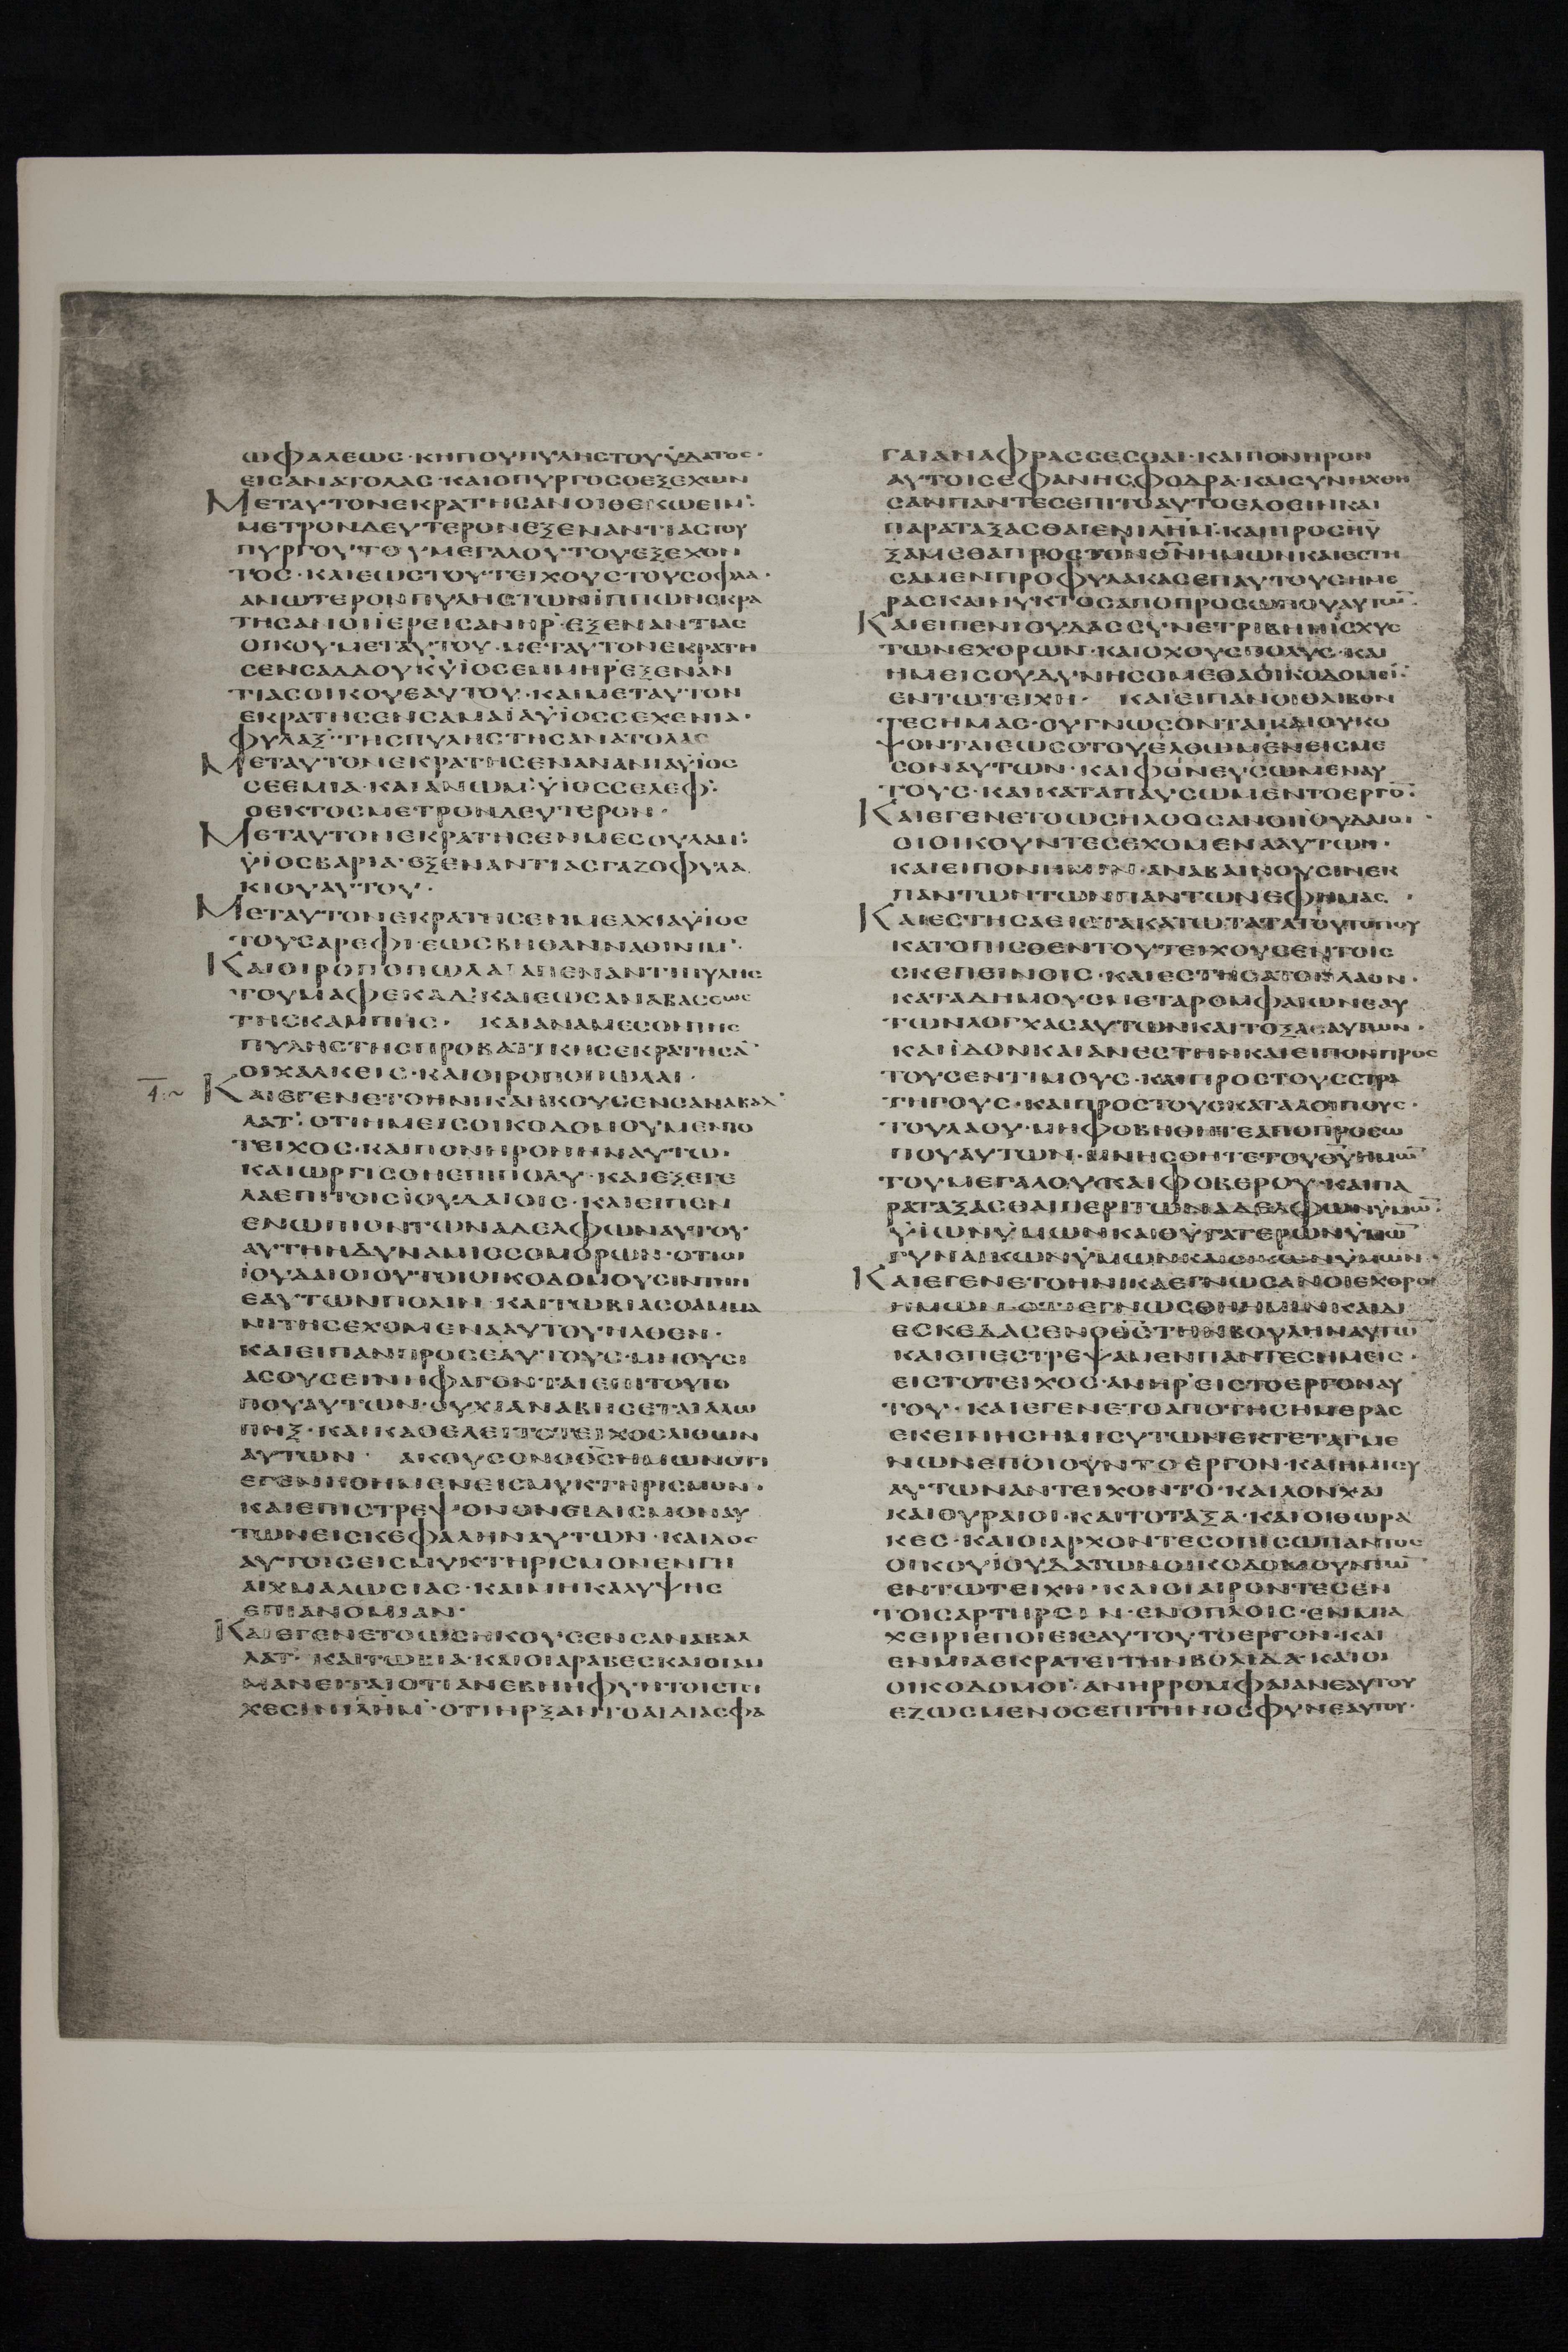 ωφαλεωc·κηπουπυληcτουϋδατοc·
ειcανατολαc·καιοπυργοcοεξεχων
Μεταυτονεκρατηcανοιθεκωειν·
μετρονδευτερονεξεναντιαcτου
πυργουτουμεγαλουτουεξεχον
τοc·καιεωcτουτειχουcτουcοφλα·
ανωτερονπυληcτωνϊππωνεκρα
τηcανοιϊερειcανηρ·εξεναντιαc
οικουμεταυτου·μεταυτονεκρατη
cενcαλλουκϋϊοcεμμηρεξεναν
τιαcοικουεαυτου·καιμεταυτον
εκρατηcενcαμαιαϋϊοccεχενια·
φυλαξ·τηcπυληcτηcανατολαc
Μεταυτονεκρατηcενανανιαϋϊοc
cεεμια·καιανωμ·ϋϊοccελεφ·
οεκτοcμετρονδευτερον·
Μεταυτονεκρατηcενμεcουλαμ·
ϋϊοcβαρια·εξεναντιαcγαζοφυλα
κιουαυτου·
Μεταυτονεκρατηcενμελχιαϋϊοc
τουcαρεφι·εωcβηθανναθινιμ·
Καιοιροποπωλαιαπεναντιπυληc
τουμαφεκαδ·καιεωcαναβαcεωc
τηcκαμπηc· καιαναμεcοντηc
πυληcτηcπροβατικηcεκρατηcα̅
οιχαλκειc·καιοιροποπωλαι·
Καιεγενετοηνικαηκουcενcαναβαλ
λατ·οτιημειcοικοδομουμεντο
τειχοc·καιπονηρονηναυτω·
καιωργιcθηεπιπολυ·καιεξεγε
λαεπιτοιcϊουδαιοιc·καιειπεν
ενωπιοντωναδελφωναυτου·
αυτηηδυναμιccομορων·οτιοι
ϊουδαιοιουτοιοικοδομουcιντην
εαυτωνπολιν·καιτωβιαcοαμμα
νιτηcεχομενααυτουηλθεν·
καιειπανπροcεαυτουc·μηθυcι
αcουcεινηφαγονταιεπιτουτο
πουαυτων·ουχιαναβηcεταιαλω
πηξ·καικαθελειτοτειχοcλιθων
αυτων· ακουcονοθ̅c̅ημωνοτι
εγενηθημενειcμυκτηριcμον·
καιεπιcτρεψονονειδιcμοναυ
τωνειcκεφαληναυτων·καιδοc
αυτουcειcμυκτηριcμονενγη
αιχμαλωcιαc·καιμηκαλυψηc
επιανομιαν·
Καιεγενετοωcηκουcενcαναβαλ
λατ·καιτωβιακαιοιαραβεcκαιοιαμ
μανειταιοτιανεβηηφυητοιcτει
χεcινιλ̅η̅μ̅·οτιηρξαντοαιδιαcφα
γαιαναφραccεcθαι·καιπονηρον
αυτοιcεφανηcφοδρα·καιcυνηχθη
cανπαντεcεπιτοαυτοελθεινκαι
παραταξαcθαιενιλ̅η̅μ̅·καιπροcηυ
ξαμεθαπροcτονθ̅ν̅ημωνκαιεcτη
cαμενπροφυλακαcεπαυτουcημε
ραcκαινυκτοcαποπροcωπουαυτω̅·
Καιειπενϊουδαccυνετριβηηϊcχυc
τωνεχθρων·καιοχουcπολυc·και
ημειcουδυνηcομεθαοικοδομει̅
εντωτειχη· καιειπανοιθλιβον
τεcημαc·ουγνωcονταικαιουκο
ψονταιεωcοτουελθωμενειcμε
cοναυτων·καιφονευcωμεναυ
τουc·καικαταπαυcωμεντοεργο̅·
Καιεγενετοωcηλθοcανοιϊουδαιοι·
οιοικουντεcεχομενααυτων·
καιειπονημιν·αναβαινουcινεκ
παντωντωνπαντωνεφημαc·
Καιεcτηcαειcτακατωτατατουτοπου
κατοπιcθεντουτειχουcεντοιc
cκεπεινοιc·καιεcτηcατονλαον·
καταδημουcμεταρομφαιωνεαυ
τωνλογχαcαυτωνκαιτοξααυτων·
καιϊδονκαιανεcτηνκαιειπονπροc
τουcεντιμουc·καιπροcτουccτρα
τηγουc·καιπροcτουcκαταλοιπουc·
τουλαου·μηφοβηθητεαποπροcω
πουαυτων·μνηcθητετουθ̅υ̅ημω̅
τουμεγαλουκαιφοβερου·καιπα
ραταξαcθαιπεριτωναδελφωνϋμω̅·
ϋϊωνϋμωνκαιθυγατερωνϋμω̅
γυναικωνϋμωνκαιοικωνϋμων·
Καιεγενετοηνικαεγνωcανοιεχθροι
ημωνοτιεγνωcθηημινκαιδι
εcκεδαcενοθ̅c̅τηνβουληναυτω̅
καιεπεcτρεψαμενπαντεcημειc·
ειcτοτειχοc·ανηρειcτοεργοναυ
του·καιεγενετοαποτηcημεραc
εκεινηcημιcυτωνεκτεταγμε
νωνεποιουντοεργον·καιημιcυ
αυτωναντειχοντο·καιλονχαι
καιθυραιοι·καιτοταξα·καιοιθωρα
κεc·καιοιαρχοντεcοπιcωπαντοc
οικουϊουδατωνοικοδομουντω̅
εντωτειχη·καιοιαιροντεcεν
τοιcαρτηρcιν·ενοπλοιc·ενμια
χειριεποιειεαυτουτοεργον·και
ενμιαεκρατειτηνβολιδα·καιοι
οικοδομοι·ανηρρομφαιανεαυτου
εζωcμενοcεπιτηνοcφυνεαυτου·